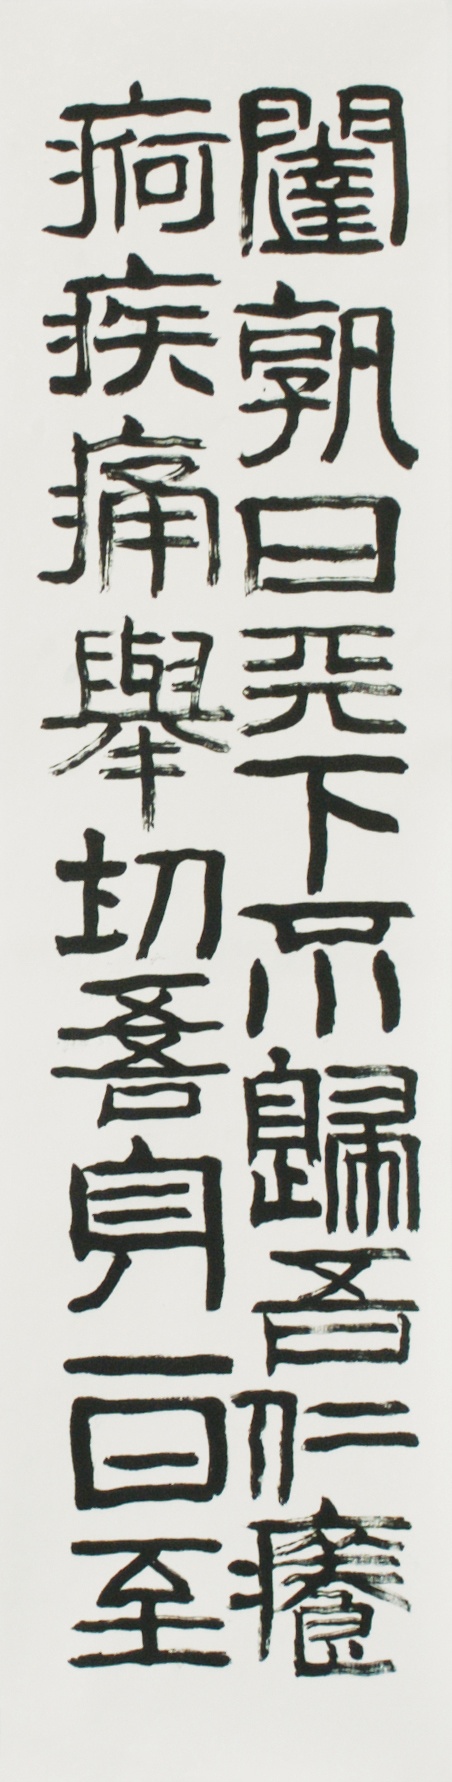 闥孰曰天下不歸吾仁癢
痾疾痛舉切吾身一日至